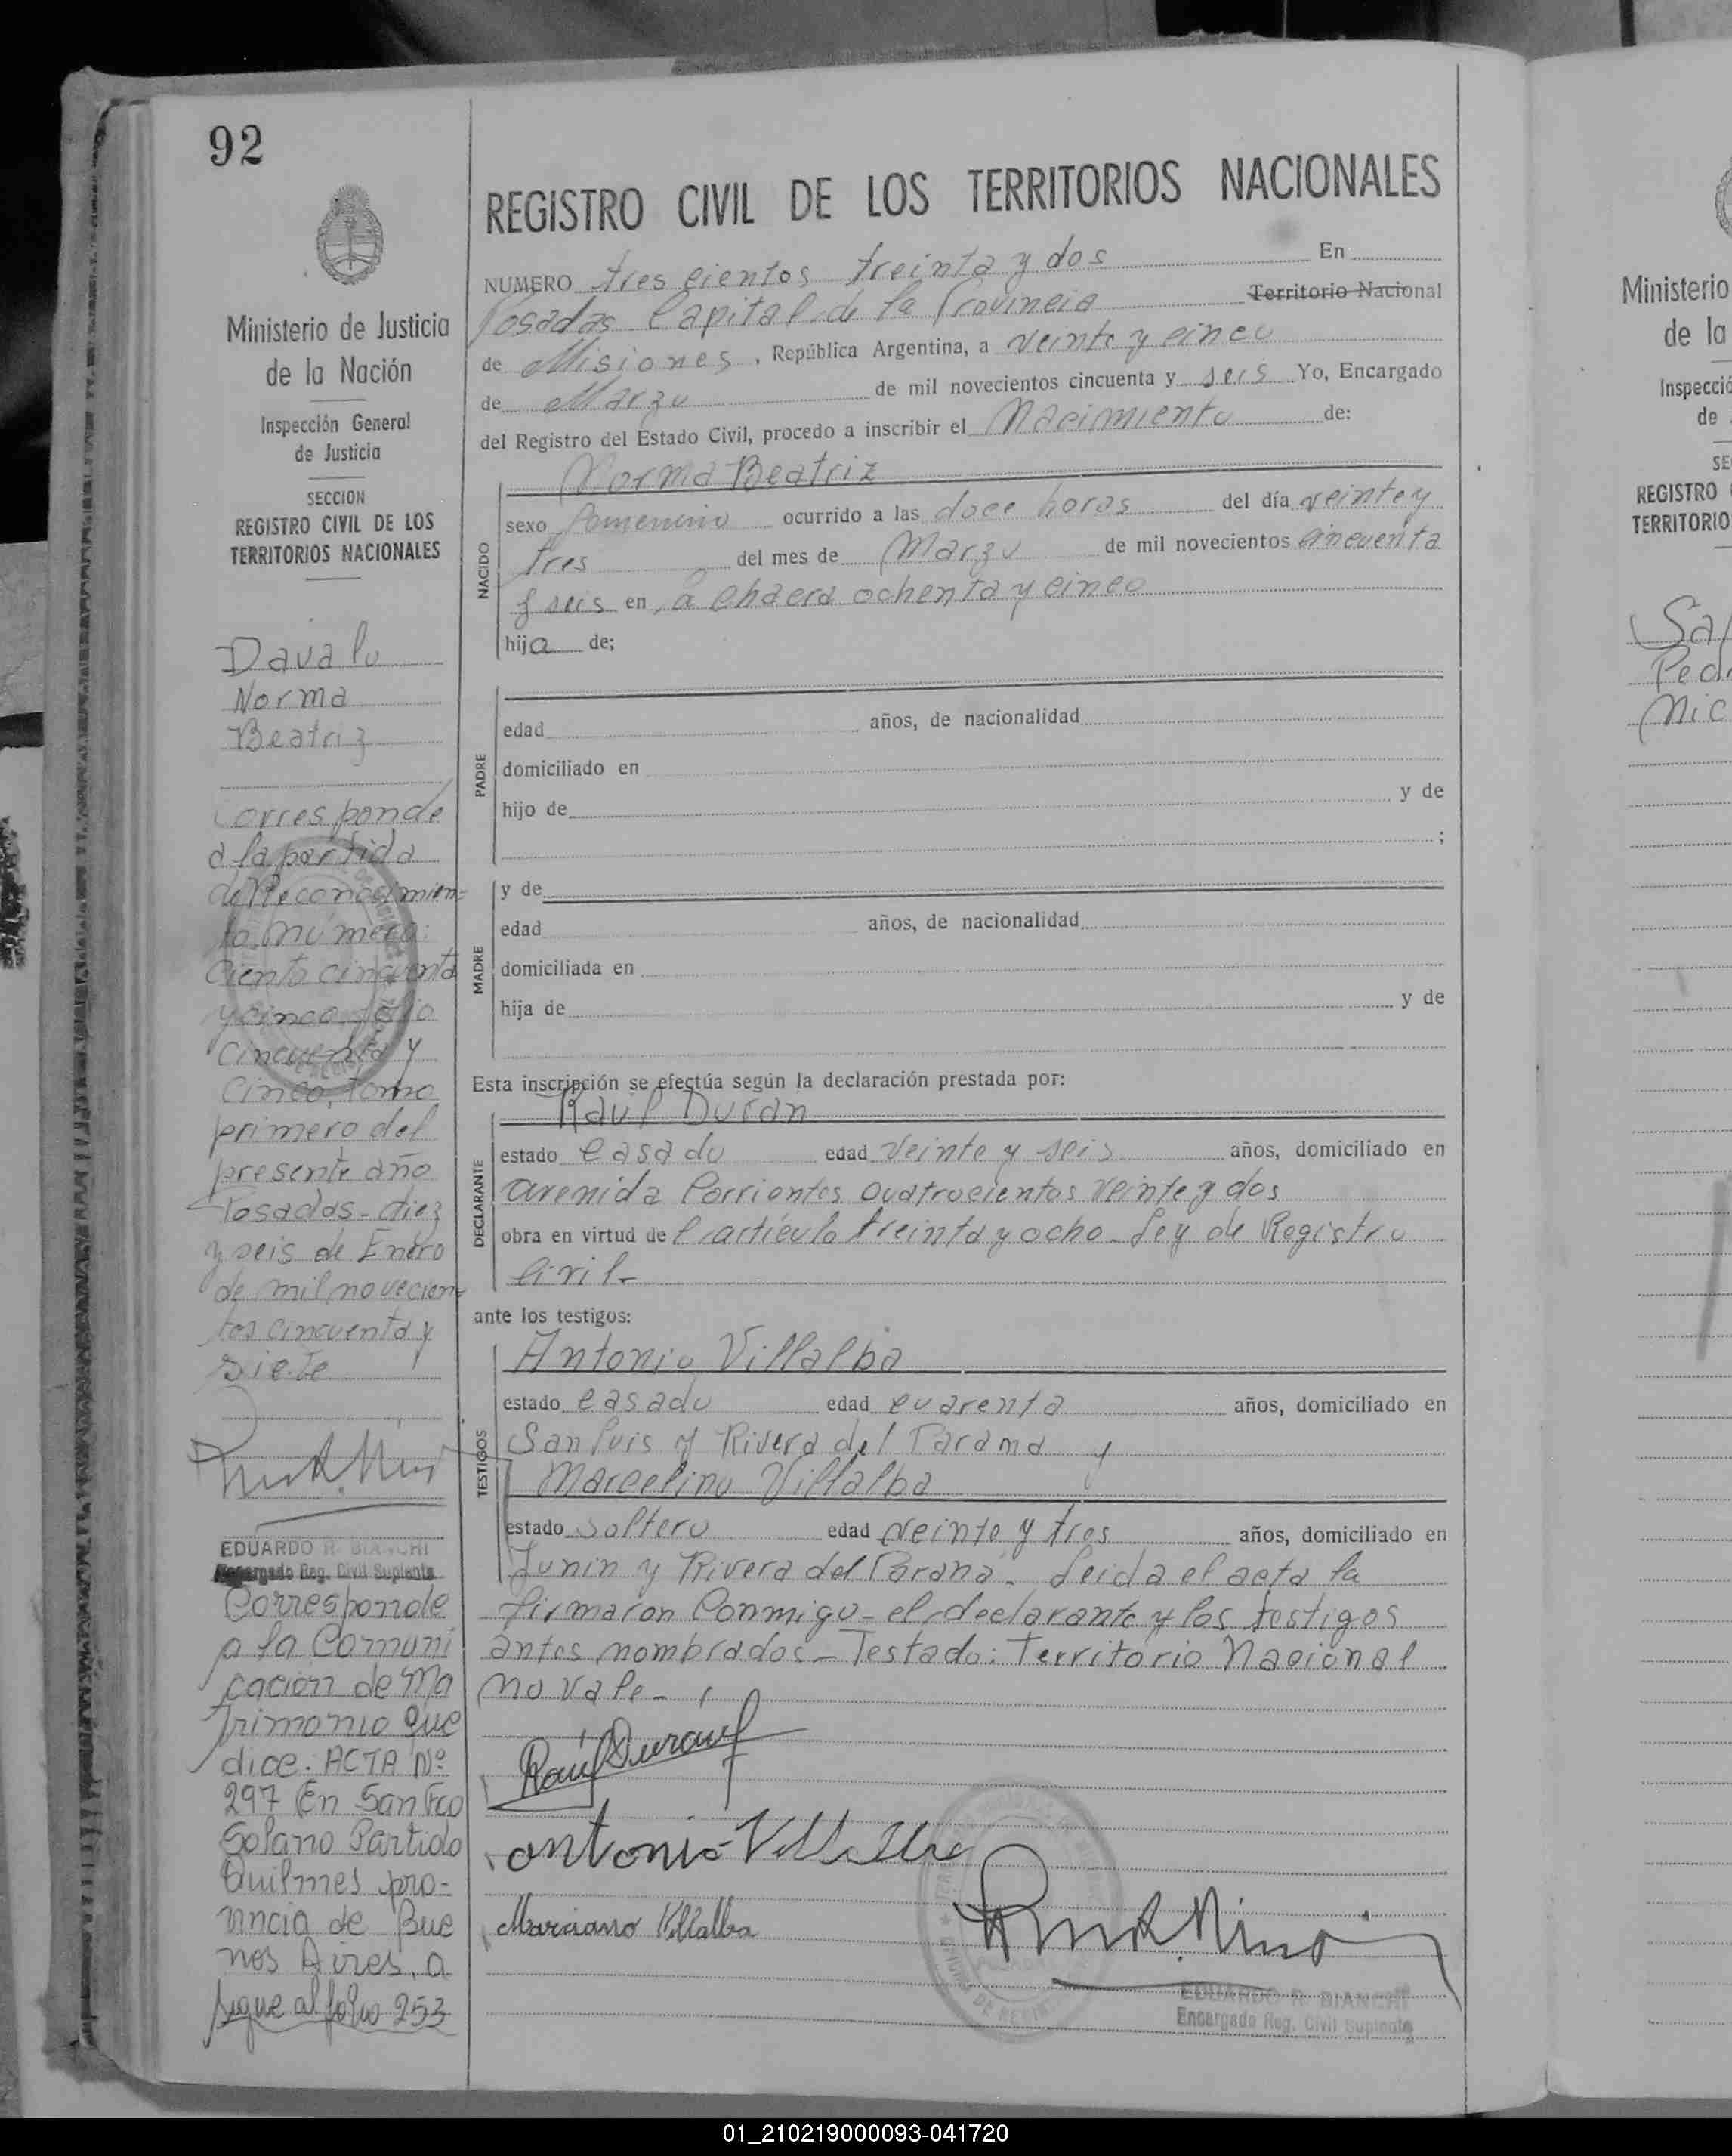 92
Ministerio de Justicia
de la Nación
Inspección General
de Justicia
SECCION
REGISTRO CIVIL DE LOS
TERRITORIOS NACIONALES
Davalo
Norma
Beatriz
Corresponde
a la partida
de Reconocimien-
to número:
Ciento cincuenta
y cinco folio
Cincuenta y
Cinco, tomo
primero del
presente año
Posadas - diez
y seis de Enero
de mil novecien-
tos cincuenta y
siete
EDUARDO R. BIANCHI
Encargado Reg. Civil Suplente
Corresponde
a la Comuni
cación de Ma
trimonio que
dice: ACTA Nº
297 En San Fco
Solano Partido
Quilmes pro-
vincia de Bue
nos Aires, a
sigue al folio 253
REGISTRO CIVIL DE LOS TERRITORIOS NACIONALES
NUMERO trescientos treinta y dos En
Posadas Capital de la Provincia Territorio Nacional
de Misiones, República Argentina, a veinte y cinco
de Marzo de mil novecientos cincuenta y seis Yo, Encargado
del Registro del Estado Civil, procedo a inscribir el Nacimiento de:
Norma Beatriz
NACIDO
sexo femenino ocurrido a las doce horas del día veinte y
tres del mes de Marzo de mil novecientos cincuenta
y seis en, a chacra ochenta y cinco
hija de;
PADRE
edad años, de nacionalidad
domiciliado en
hijo de y de
;
MADRE
y de
edad años, de nacionalidad
domiciliada en
hija de y de
Esta inscripción se efectúa según la declaración prestada por:
Raúl Duran
DECLARANTE
estado casado edad veinte y seis años, domiciliado en
avenida Corrientes cuatrocientos veinte y dos
obra en virtud de l artículo treinta y ocho - Ley de Registro
Civil -
ante los testigos:
TESTIGOS
Antonio Villalba
estado casado edad cuarenta años, domiciliado en
San Luis y Rivera del Parana y
Marcelino Villalba
estado soltero edad veinte y tres años, domiciliado en
Junin y Rivera del Paraná - Leida el acta la
firmaron Conmigo - el declarante y los testigos
antes nombrados - Testado: Territorio Nacional
no vale -
Raúl Duran
Antonio Villalba
Marciano Villalba
EDUARDO R. BIANCHI
Encargado Reg. Civil Suplente
Ministerio
de la
Inspecció
de
SE
REGISTRO
TERRITORIO
01_210219000093-041720